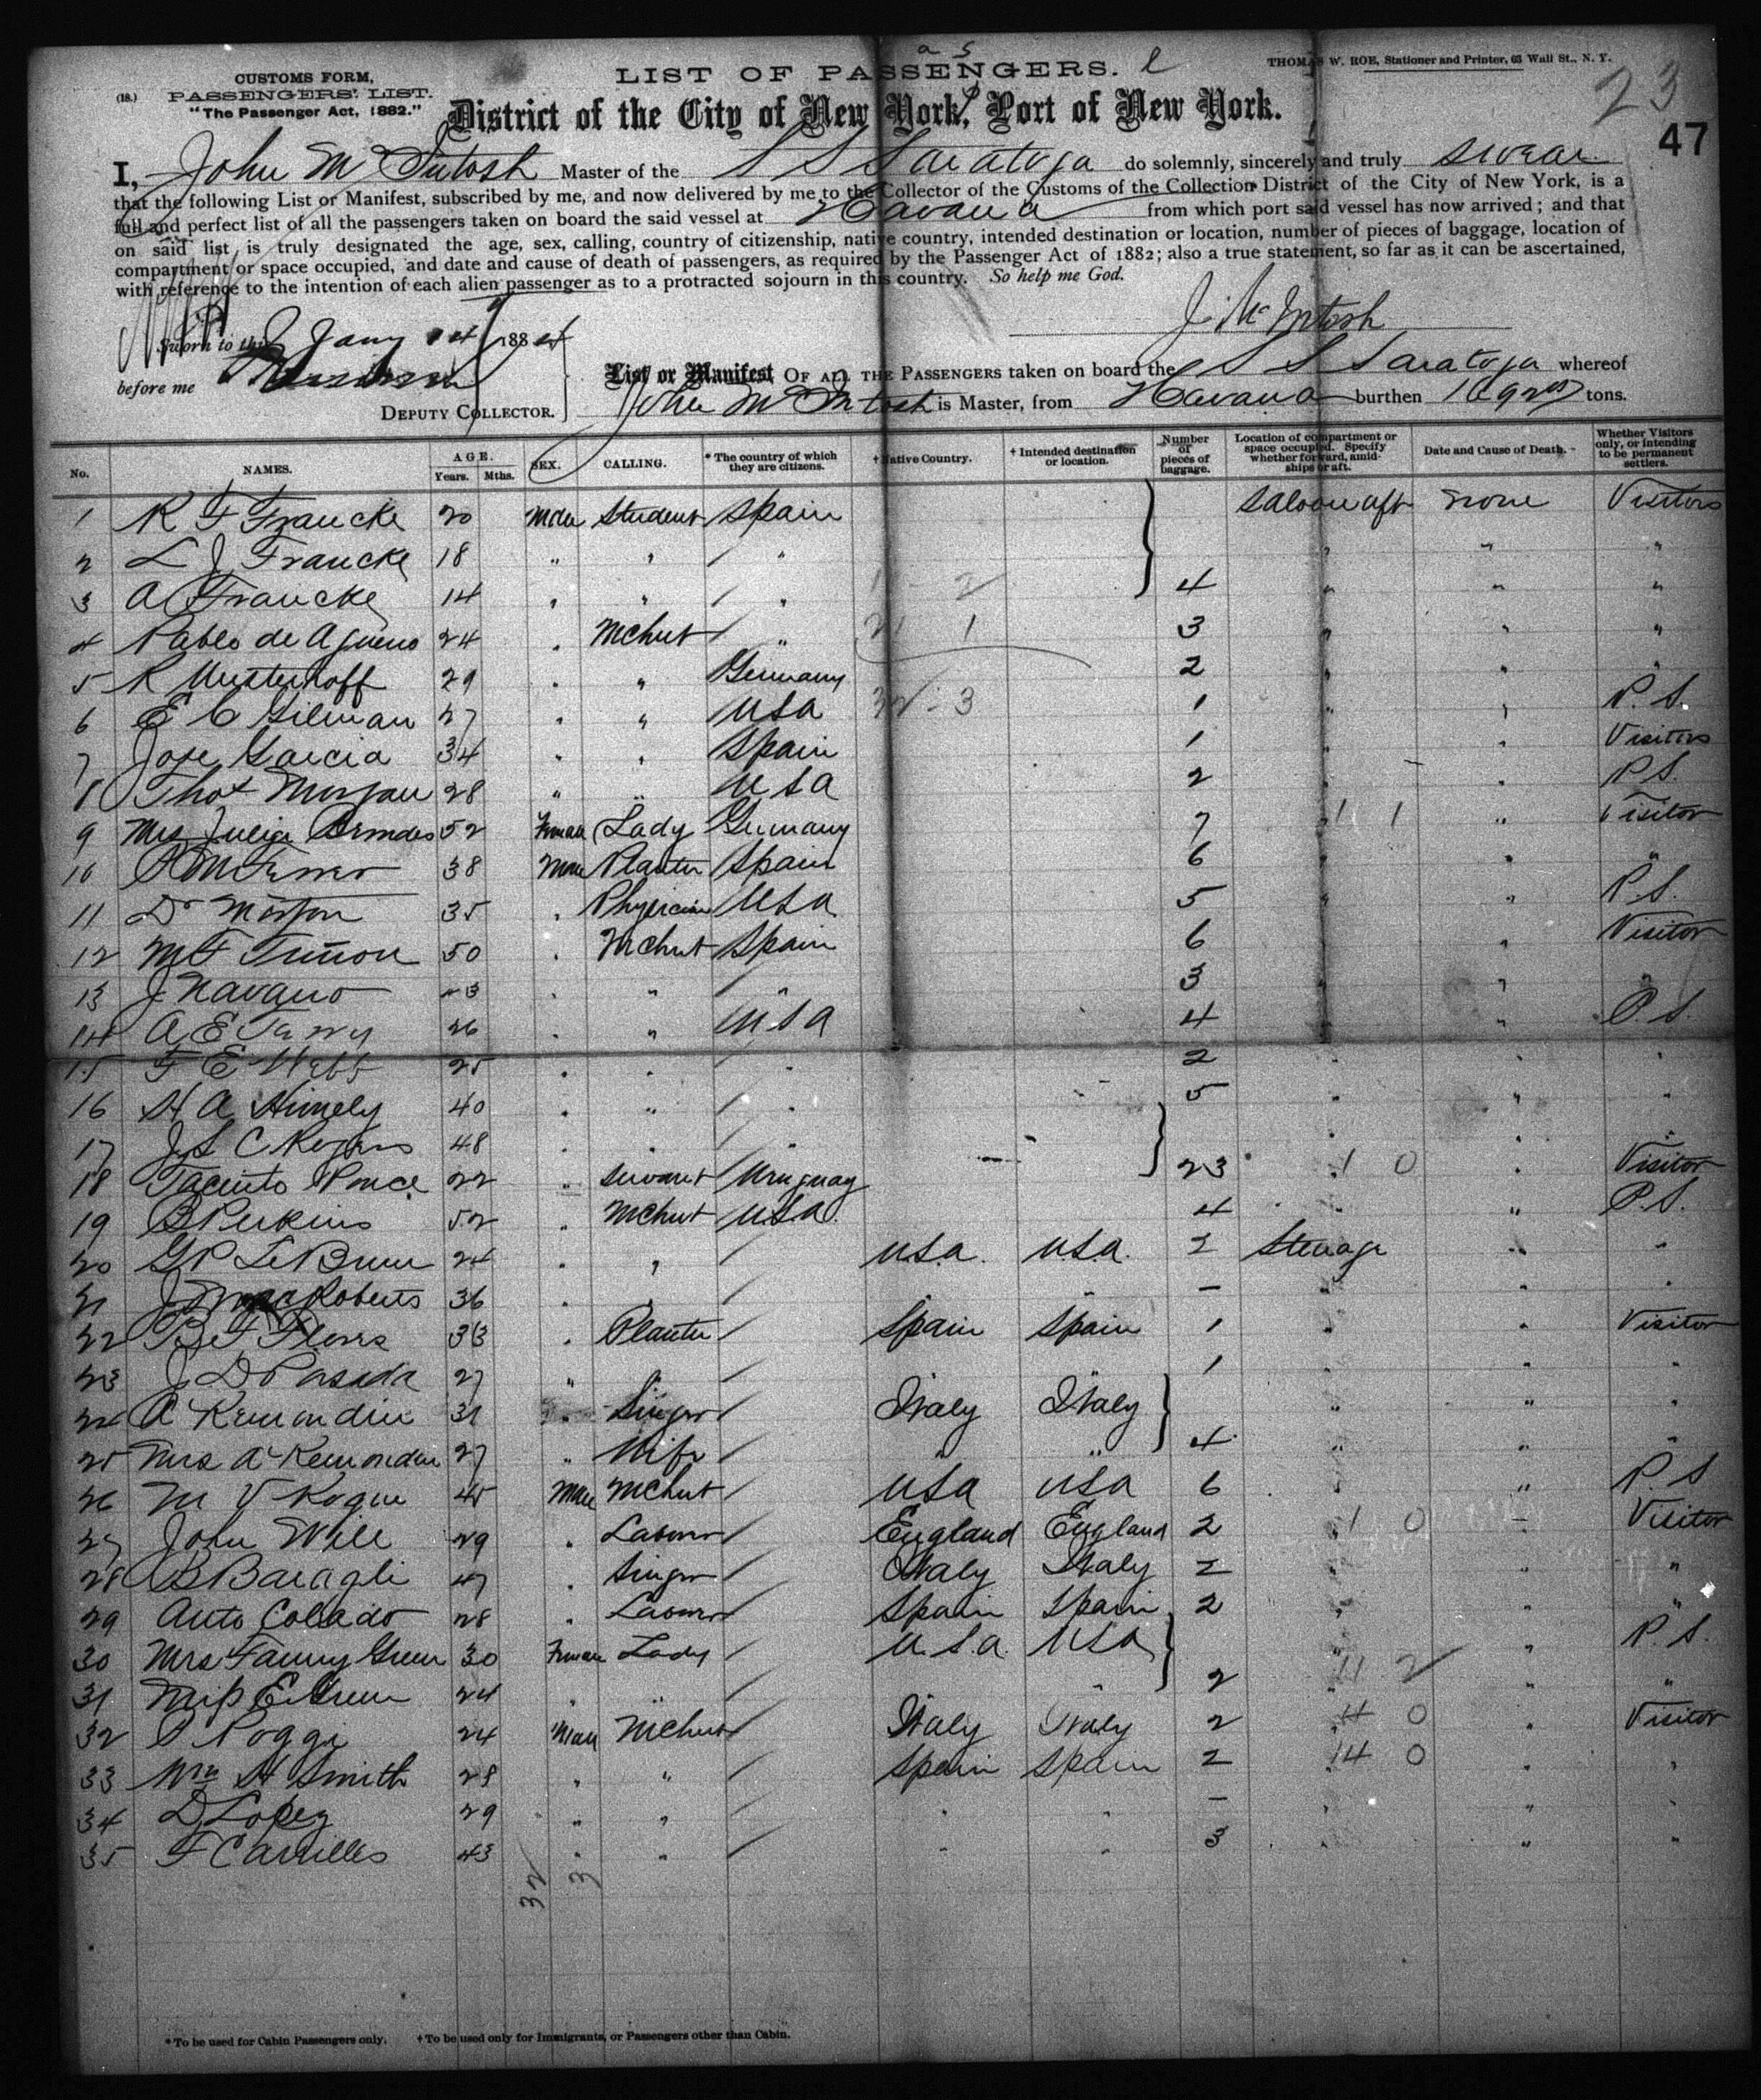 CUSTOMS FORM,
(18.) PASSENGERS' LIST.
"The Passenger Act, 1882."
LIST OF PASSENGERS.
THOMAS W. ROE, Stationer and Printer, 63 Wall St., N. Y.
23
District of the City of New York, Port of New York.
47
I, John McIntosh Master of the S S Saratoga do solemnly, sincerely and truly swear
that the following List or Manifest, subscribed by me, and now delivered by me to the Collector of the Customs of the Collection District of the City of New York, is a
full and perfect list of all the passengers taken on board the said vessel at Havana from which port said vessel has now arrived; and that
on said list is truly designated the age, sex, calling, country of citizenship, native country, intended destination or location, number of pieces of baggage, location of
compartment or space occupied, and date and cause of death of passengers, as required by the Passenger Act of 1882; also a true statement, so far as it can be ascertained,
with reference to the intention of each alien passenger as to a protracted sojourn in this country. So help me God.
J. McIntosh
Sworn to this Jany 14 1884
before me
DEPUTY COLLECTOR.
List or Manifest OF ALL THE PASSENGERS taken on board the S S Saratoga whereof
John McIntosh is Master, from Havana burthen tons.
No. NAMES. AGE. Years. Mths. SEX. CALLING. * The country of which they are citizens. † Native Country. † Intended destination or location. Number of pieces of baggage. Location of compartment or space occupied. Specify whether forward, amidships or aft. Date and Cause of Death. Whether Visitors only, or intending to be permanent settlers.
1 R F Francke 20 Male Student Spain Saloon aft none Visitors
2 L J Francke 18 " " " " " "
3 A Francke 14 " " " 4 " " "
4 Pablo de 24 " Mchnt " 3 " " "
5 R 29 " " Germany 2 " " "
6 E C Gilman 27 " " USA 1 " " P. S.
7 Jose Garcia 34 " " Spain 1 " " Visitors
8 Thos Morgan 28 " " USA 2 " " P.S.
9 Mrs Julia 52 Female Lady Germany 7 " " Visitor
10 38 Male Planter Spain 6 " " "
11 Dr 35 " Physician USA 5 " " P.S.
12 M F Tuñon 50 " Mchnt Spain 6 " " Visitor
13 J Navarro " " " 3 " " "
14 A E Terry 26 " " USA 4 " " P.S.
15 F E Webb 25 " " " 2 " " "
16 H A Himely 40 " " " 5 " " "
17 48 " " " " " "
18 Jacinto Ponce 22 " servant Uruguay 23 " " Visitor
19 B Perkins 52 " Mchnt U.S.A. 4 " " P.S.
20 G P LeBrun 24 " " U.S.A. U.S.A. 2 Steerage " "
21 Roberts 36 " " " " – " " "
22 33 " Planter Spain Spain 1 " " Visitor
23 J D Posada 27 " " " " 1 " " "
24 A Remondini 31 " Singer Italy Italy " " "
25 Mrs A Remondini 27 " Wife " " 4 " " "
26 M V 45 Male Mchnt USA USA 6 " " P. S
27 John Will 29 " Laborer England England 2 " – Visitor
28 B Baragli 47 " Singer Italy Italy 2 " " "
29 Anto Colado 28 " Laborer Spain Spain 2 " " "
30 Mrs Fanny Green 30 Female Lady U.S.A. USA " " P S.
31 Miss E Green 24 " " " " 2 " " "
32 Poggi 24 Male Mchnt Italy Italy 2 " " Visitor
33 Wm H Smith 28 " " Spain Spain 2 " " "
34 D Lopez 29 " " " " – " " "
35 F 43 " " " " 3 " " "
32 3
* To be used for Cabin Passengers only. † To be used only for Immigrants, or Passengers other than Cabin.